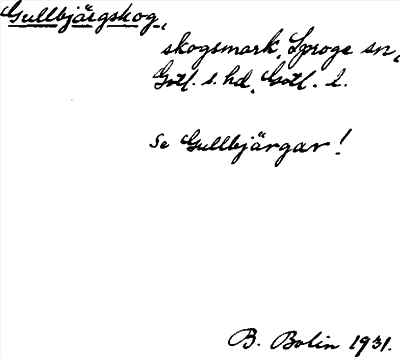 Gullbjärgskog,
skogsmark, Sproge sn,
Gotl. s. hd, Gotl. l.
Se Gullbjärgar!
B. Bolin 1931.